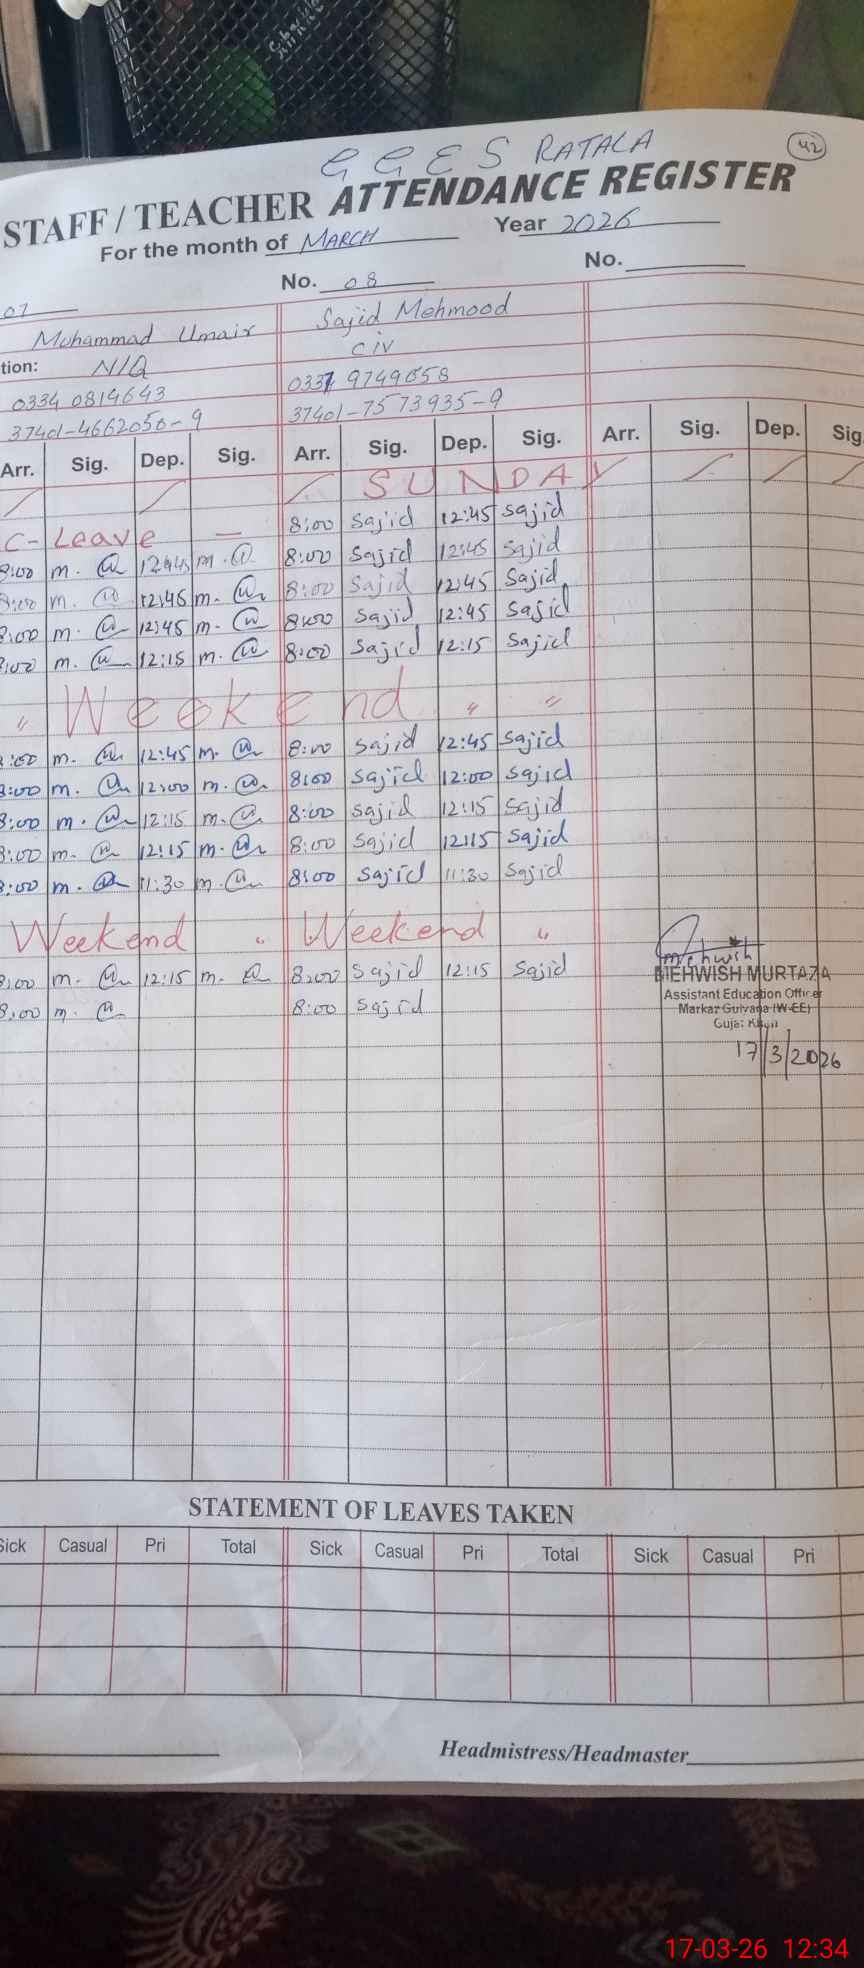 G G E S RATALA 42
STAFF / TEACHER ATTENDANCE REGISTER
For the month of MARCH Year 2026
07 No. 08 No.
Mohammad Umair Sajid Mehmood
tion: N/Q C iv
0334 0819643 0337 9749658
37401-4662050-9 37401-7573935-9
Arr. Sig. Dep. Sig. Arr. Sig. Dep. Sig. Arr. Sig. Dep. Sig.
SUNDAY
C- Leave — 8:00 Sajid 12:45 Sajid
8:00 m. 12:45 m. 8:00 Sajid 12:45 Sajid
8:00 m. 12:45 m. 8:00 Sajid 12:45 Sajid
8:00 m. 12:45 m. 8:00 Sajid 12:45 Sajid
8:00 m. 12:15 m. 8:00 Sajid 12:15 Sajid
" Week end " "
8:00 m. 12:45 m. 8:00 Sajid 12:45 Sajid
8:00 m. 12:00 m. 8:00 Sajid 12:00 Sajid
8:00 m. 12:15 m. 8:00 Sajid 12:15 Sajid
8:00 m. 12:15 m. 8:00 Sajid 12:15 Sajid
8:00 m. 11:30 m. 8:00 Sajid 11:30 Sajid
Weekend " Weekend "
8:00 m. 12:15 m. 8:00 Sajid 12:15 Sajid
8:00 m. 8:00 Sajid
Mehwish
MEHWISH MURTAZA
Assistant Education Officer
Markaz Gulyana (W-EE)
Gujar Khan
17/3/2026
STATEMENT OF LEAVES TAKEN
Sick Casual Pri Total Sick Casual Pri Total Sick Casual Pri
Headmistress/Headmaster
17-03-26 12:34